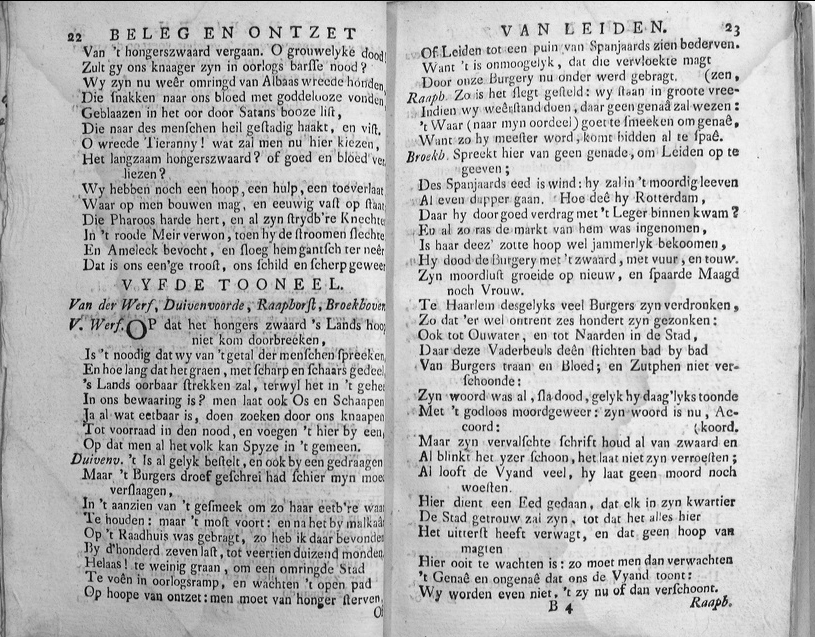 22 BELEG EN ONTZET
Van 't hongerszwaard vergaan. O grouwelyke dood
Zult gy ons knaager zyn in oorlogs barſſe nood?
Wy zyn nu weêr omringd van Albaas wreede honden,
Die ſnakken naar ons bloed met goddelooze vonden
Geblaazen in het oor door Satans booze liſt,
Die naar des menſchen heil geſtadig haakt, en viſt.
O wreede Tieranny! wat zal men nu hier kiezen,
Het langzaam hongerszwaard? of goed en bloed ver
liezen?
Wy hebben noch een hoop, een hulp, een toeverlaat
Waar op men bouwen mag, en eeuwig vaſt op ſtaat
Die Pharoos harde hert, en al zyn ſtrydb're Knechte
In 't roode Meir verwon, toen hy de ſtroomen ſlechte
En Ameleck bevocht, en ſloeg hem gantſch ter neêr
Dat is ons een'ge trooſt, ons ſchild en ſcherp geweer
VYFDE TOONEEL.
Van der Werf, Duivenvoorde, Raaphorſt, Broekhoven
V. Werf. OP dat het hongers zwaard 's Lands hoo
niet kom doorbreeken,
Is 't noodig dat wy van 't getal der menſchen ſpreeken
En hoe lang dat het graen, met ſcharp en ſchaars gedeel
's Lands oorbaar ſtrekken zal, terwyl het in 't gehee
In ons bewaaring is? men laat ook Os en Schaapen
Ja al wat eetbaar is, doen zoeken door ons knaapen
Tot voorraad in den nood, en voegen 't hier by een,
Op dat men al het volk kan Spyze in 't gemeen.
Duivenv. 't Is al gelyk beſtelt, en ook by een gedraagen
Maar 't Burgers droef geſchrei had ſchier myn moe
verſlaagen,
In 't aanzien van 't geſmeek om zo haar eetb're waar
Te houden: maar 't moſt voort: en na het by malkaâ
Op 't Raadhuis was gebragt, zo heb ik daar bevonden
By d'honderd zeven laſt, tot veertien duizend monden,
Helaas! te weinig graan, om een omringde Stad
Te voên in oorlogsramp, en wachten 't open pad
Op hoope van ontzet: men moet van honger ſterven,
O
VAN LEIDEN. 23
Of Leiden tot een puin van Spanjaards zien bederven.
Want 't is onmoogelyk, dat die vervloekte magt
Door onze Burgery nu onder werd gebragt. (zen,
Raapb. Zo is het ſlegt geſteld: wy ſtaan in groote vree-
Indien wy weêrſtand doen, daar geen genaê zal wezen:
't Waar (naar myn oordeel) goet te ſmeeken om genaê,
Want zo hy meeſter word, komt bidden al te ſpaê.
Broekb. Spreekt hier van geen genade, om Leiden op te
geeven;
Des Spanjaards eed is wind: hy zal in 't moordig leeven
Al even dapper gaan. Hoe deê hy Rotterdam,
Daar hy door goed verdrag met 't Leger binnen kwam?
En al zo ras de markt van hem was ingenomen,
Is haar deez' zotte hoop wel jammerlyk bekoomen,
Hy dood de Burgery met 't zwaard, met vuur, en touw.
Zyn moordluſt groeide op nieuw, en ſpaarde Maagd
noch Vrouw.
Te Haarlem desgelyks veel Burgers zyn verdronken,
Zo dat 'er wel ontrent zes hondert zyn gezonken:
Ook tot Ouwater, en tot Naarden in de Stad,
Daar deze Vaderbeuls deên ſtichten bad by bad
Van Burgers traan en Bloed; en Zutphen niet ver-
ſchoonde:
Zyn woord was al, ſla dood, gelyk hy daag'lyks toonde
Met 't godloos moordgeweer: zyn woord is nu, Ac-
coord: (koord.
Maar zyn vervalſchte ſchrift houd al van zwaard en
Al blinkt het yzer ſchoon, het laat niet zyn verroeſten;
Al looft de Vyand veel, hy laat geen moord noch
woeſten.
Hier dient een Eed gedaan, dat elk in zyn kwartier
De Stad getrouw zal zyn, tot dat het alles hier
Het uitterſt heeft verwagt, en dat geen hoop van
magten
Hier ooit te wachten is: zo moet men dan verwachten
't Genaê en ongenaê dat ons de Vyand toont:
Wy worden even niet, 't zy nu of dan verſchoont.
B 4 Raapb.